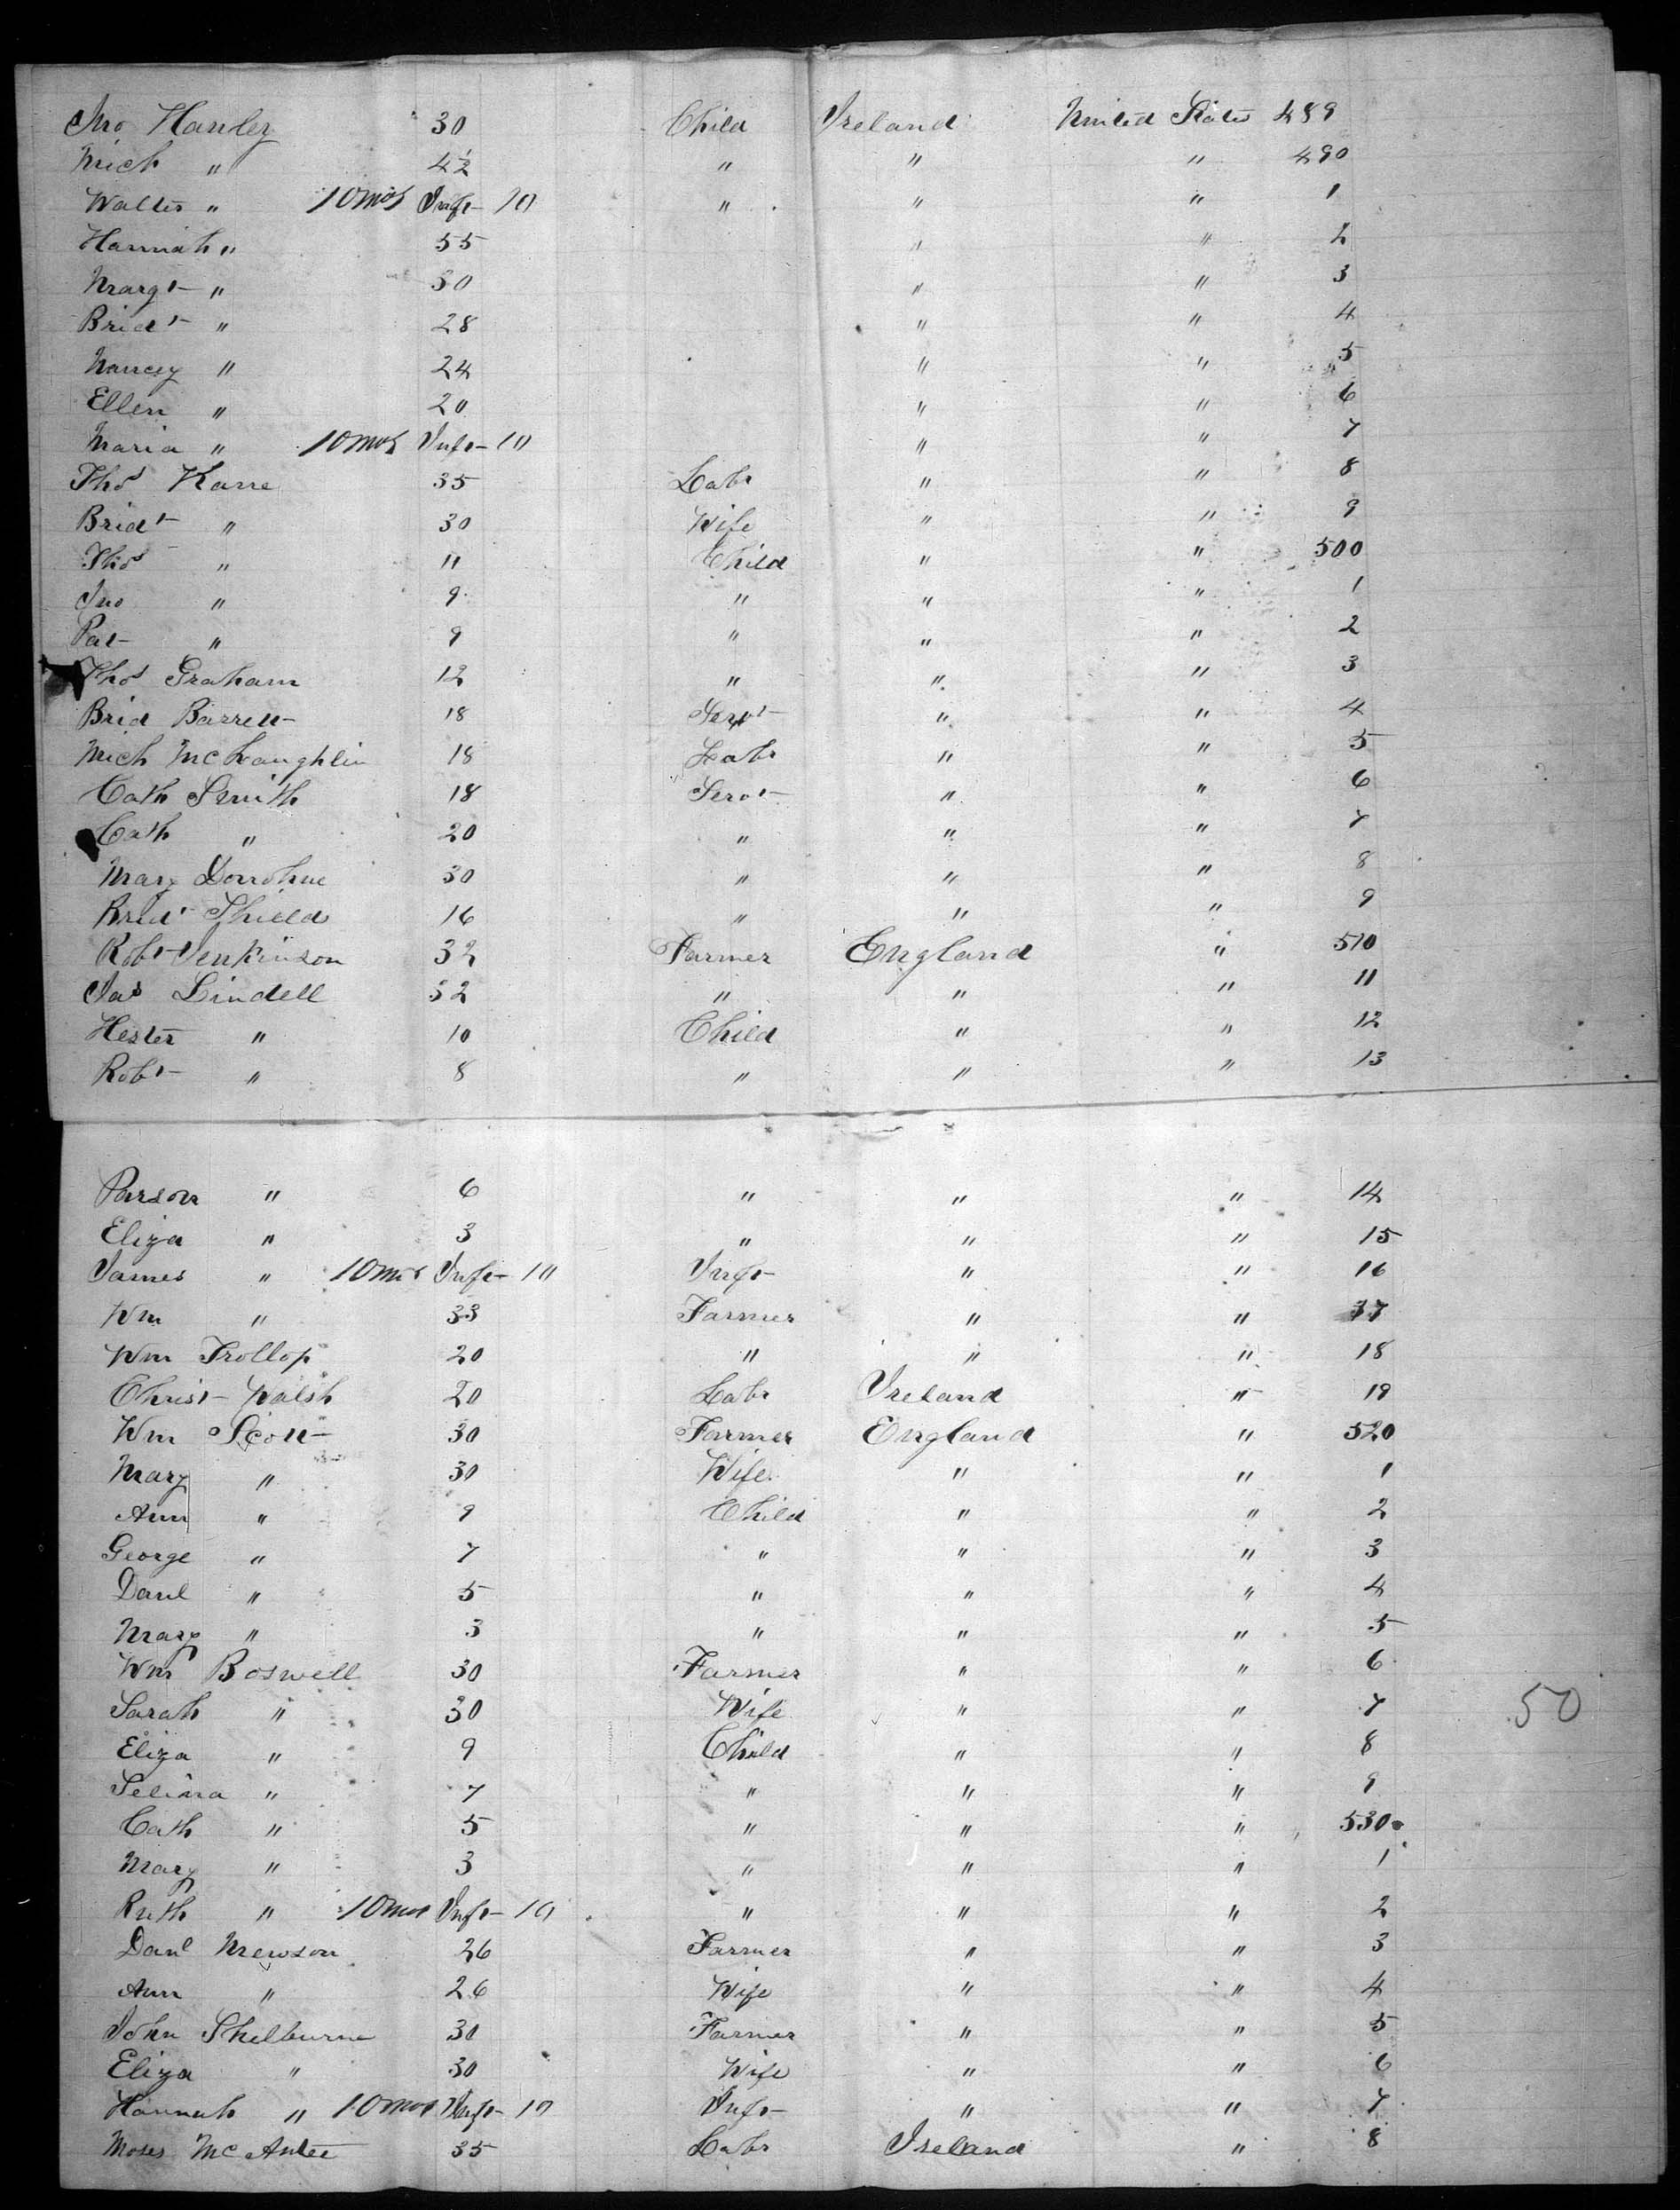 Jno Hanley 30 Child Ireland United States 489
Mich " 4½ " " " 490
Walter " 10 mos Inft 10 " " " 1
Hannah " 55 " " 2
Margt " 30 " " 3
Bridt " 28 " " 4
Nancy " 24 " " 5
Ellen " 20 " " 6
Maria " 10 mos Inft 10 " " 7
Thos Kane 35 Labr " " 8
Bridt " 30 Wife " " 9
Thos " 11 Child " " 500
Jno " 9 " " " 1
Pat " 9 " " " 2
Thos Graham 12 " " " 3
Brid Barrett 18 Servt " " 4
Mich McLaughlin 18 Labr " " 5
Cath Smith 18 Servt " " 6
Cath " 20 " " " 7
Mary Donohue 30 " " " 8
Bridt Shield 16 " " " 9
Robt Jenkinson 32 Farmer England " 510
Jas Lindell 52 " " " 11
Hester " 10 Child " " 12
Robt " 8 " " " 13
Parson " 6 " " " 14
Eliza " 3 " " " 15
James " 10 mos Inft 10 Inft " " 16
Wm " 33 Farmer " " 17
Wm Trollop 20 " " " 18
Christ Walsh 20 Labr Ireland " 19
Wm Scott 30 Farmer England " 520
Mary " 30 Wife " " 1
Ann " 9 Child " " 2
George " 7 " " " 3
Danl " 5 " " " 4
Mary " 3 " " " 5
Wm Boswell 30 Farmer " " 6
Sarah " 30 Wife " " 7 50
Eliza " 9 Child " " 8
Selina " 7 " " " 9
Cath " 5 " " " 530
Mary " 3 " " " 1
Ruth " 10 mos Inft 10 " " " 2
Danl Mewson 26 Farmer " " 3
Ann " 26 Wife " " 4
John Shelburne 30 Farmer " " 5
Eliza " 30 Wife " " 6
Hannah " 10 mos Inft 10 Inft " " 7
Moses McAntee 35 Labr Ireland " 8